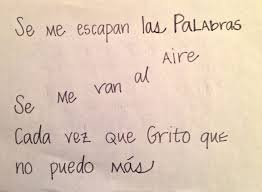 Se me escapan las PaLabras
Se Me van al Aire
Cada vez que Grito que
no puedo más